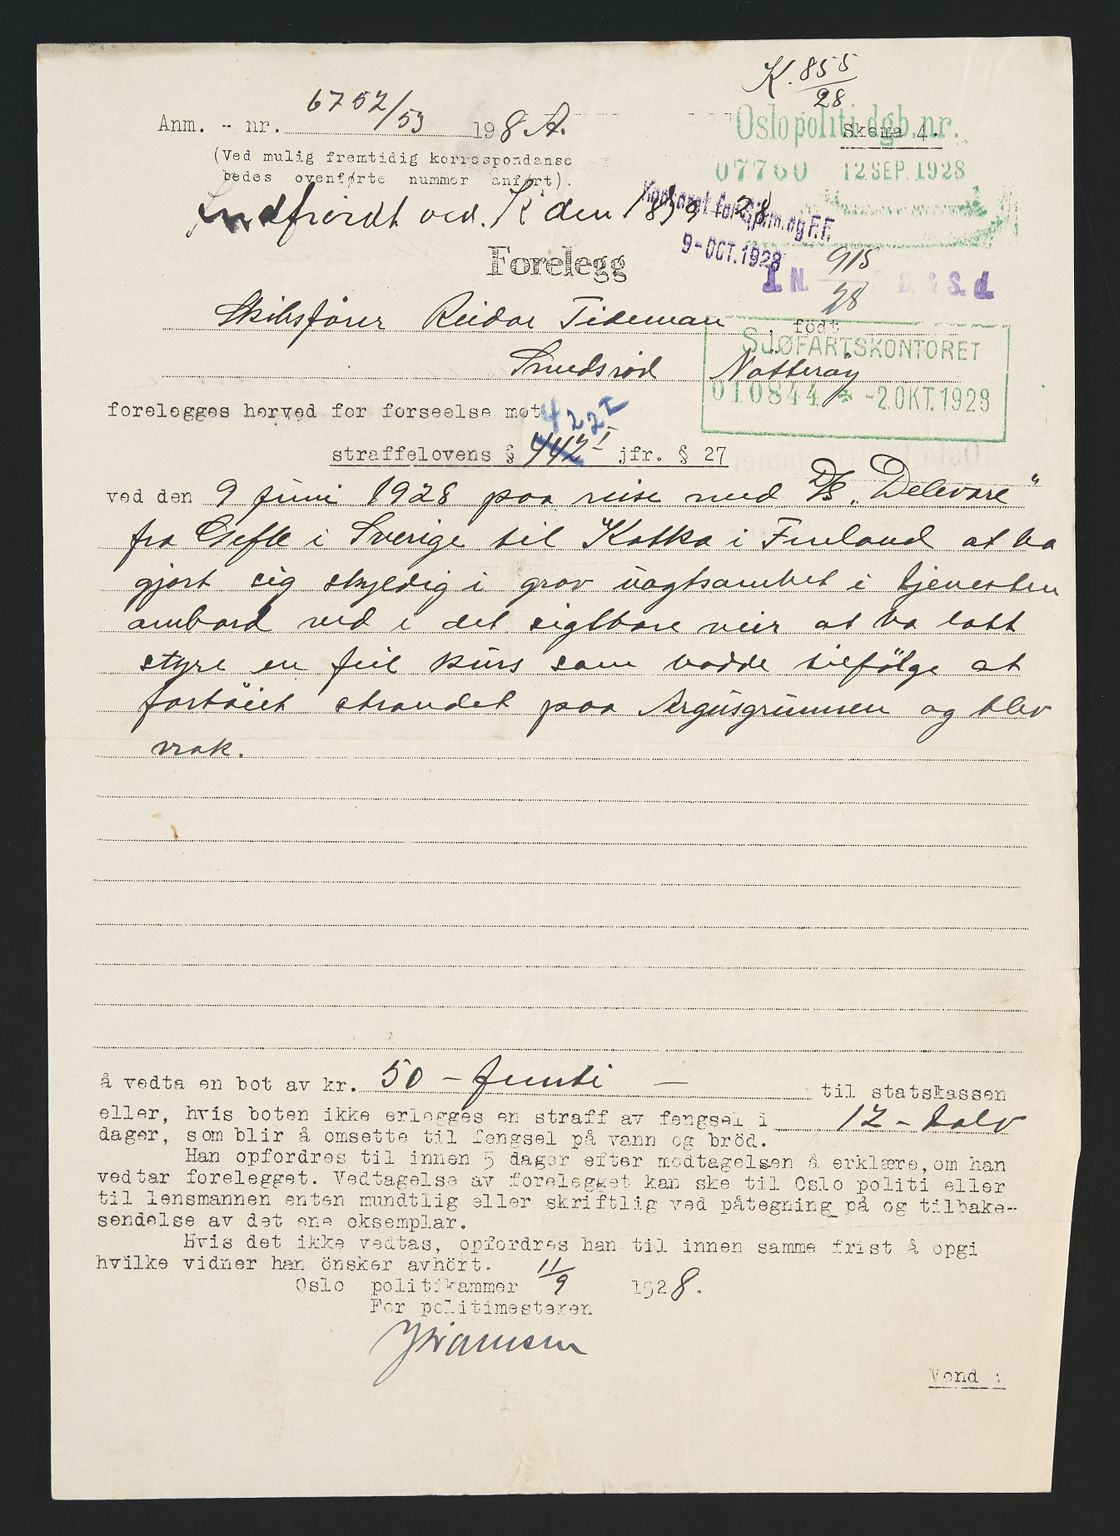 K. 855/28
6752/53
Anm. - nr. 198 A.
Oslo politi dgb. nr.
Skema 4.
(Ved mulig fremtidig korrespondanse
bedes ovenførte nummer anført).
07760 12.SEP.1928
Indfrierdt ved. K den 18/9 28
Kontoret for Sjøm. og F.F.
9-OCT.1928
Forelegg
J. N. 915/28 D. & S. d.
Skibsfører Reidar Tideman, født
SJØFARTSKONTORET
Smidsrød Nøtterøy
010844 * -2.OKT.1928
forelegges herved for forseelse mot
422 I
straffelovens § 442 I jfr. § 27
ved den 9 juni 1928 paa reise med D/S „Delevare"
fra Gefle i Sverige til Kotka i Finland at ha
gjort sig skyldig i grov uagtsomhet i tjenesten
ombord ved i det sigtbare veir at ha latt
styre en feil kurs som hadde tilfölge at
fartöiet strandet paa Argusgrunnen og blev
vrak.
å vedta en bot av kr. 50 - femti — til statskassen
eller, hvis boten ikke erlegges en straff av fengsel i 12 - tolv
dager, som blir å omsette til fengsel på vann og bröd.
Han opfordres til innen 5 dager efter modtagelsen å erklære, om han
vedtar forelegget. Vedtagelse av forelegget kan ske til Oslo politi eller
til lensmannen enten mundtlig eller skriftlig ved påtegning på og tilbake-
sendelse av det ene eksemplar.
Hvis det ikke vedtas, opfordres han til innen samme frist å opgi
hvilke vidner han önsker avhört.
Oslo politikammer 11/9 1928.
For politimesteren
Vend :